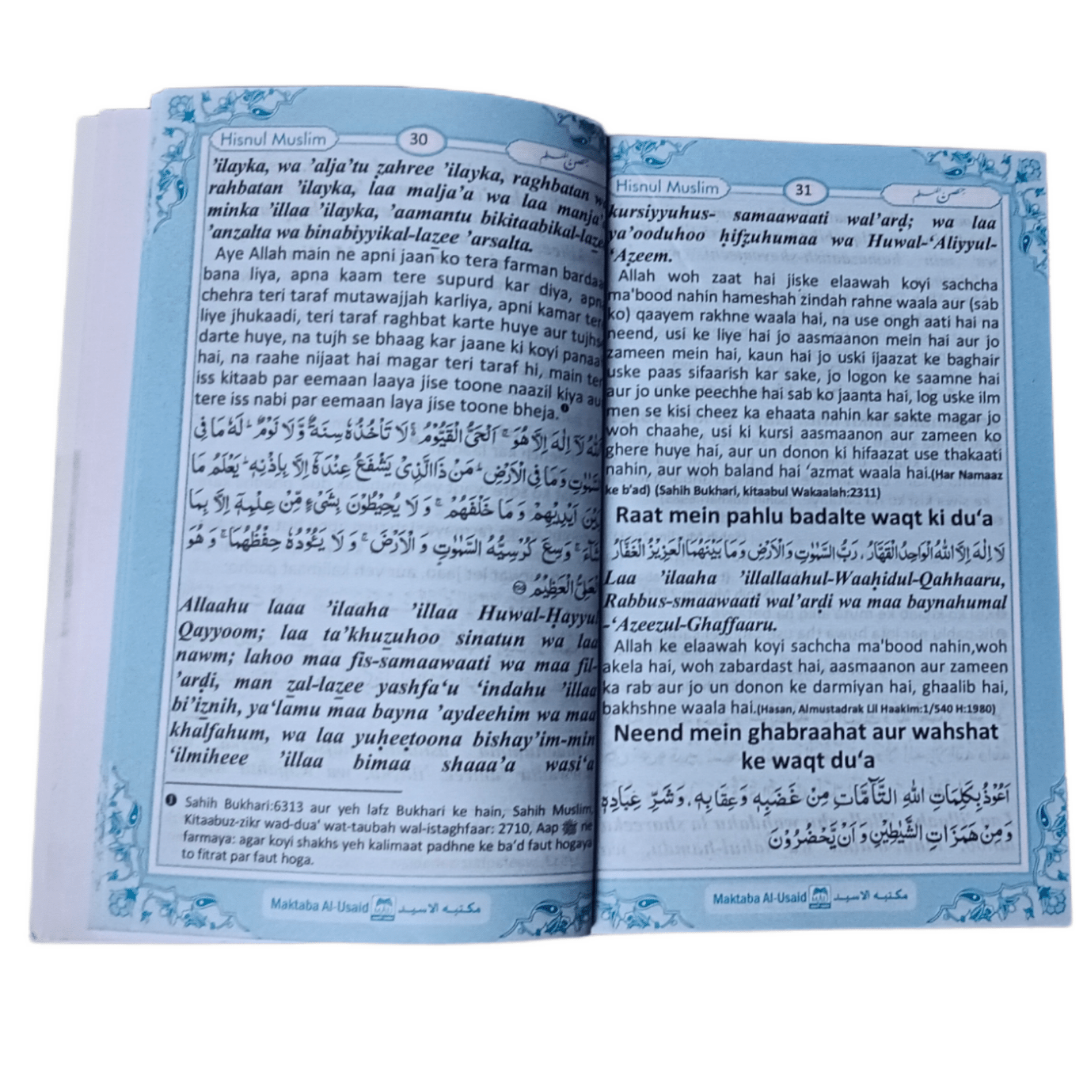 Hisnul Muslim
30
’ilayka, wa ’alja’tu z̲ahree ’ilayka, raghbatan
rahbatan ’ilayka, laa malja’a wa laa manja’
minka ’illaa ’ilayka, ’aamantu bikitaabikal-laz̲ee
’anzalta wa binabiyyikal-laz̲ee ’arsalta.
Aye Allah main ne apni jaan ko tera farman
bana liya, apna kaam tere supurd kar diya,
chehra teri taraf mutawajjah karliya, apni kamar
liye jhukaadi, teri taraf raghbat karte huye aur
darte huye, na tujh se bhaag kar jaane ki koyi
hai, na raahe nijaat hai magar teri taraf hi, main
iss kitaab par eemaan laaya jise toone naazil kiya
tere iss nabi par eemaan laya jise toone bheja.
اللهُ لَآ اِلٰهَ اِلَّا هُوَ ۚ اَلْحَيُّ الْقَيُّوْمُ ۚ لَا تَاْخُذُهٗ سِنَةٌ وَّلَا نَوْمٌ ؕ لَهٗ مَا فِي
السَّمٰوٰتِ وَمَا فِي الْاَرْضِ ؕ مَنْ ذَا الَّذِيْ يَشْفَعُ عِنْدَهٗٓ اِلَّا بِاِذْنِهٖ ؕ يَعْلَمُ مَا
بَيْنَ اَيْدِيْهِمْ وَمَا خَلْفَهُمْ ۚ وَلَا يُحِيْطُوْنَ بِشَيْءٍ مِّنْ عِلْمِهٖٓ اِلَّا بِمَا
شَآءَ ۚ وَسِعَ كُرْسِيُّهُ السَّمٰوٰتِ وَالْاَرْضَ ۚ وَلَا يَـُٔوْدُهٗ حِفْظُهُمَا ۚ وَهُوَ
الْعَلِيُّ الْعَظِيْمُ
Allaahu laaa ’ilaaha ’illaa Huwal-Ḥayyul
Qayyoom; laa ta’khuz̲uhoo sinatun wa laa
nawm; lahoo maa fis-samaawaati wa maa fil-
’arḍi, man z̲al-laz̲ee yashfa‘u ‘indahu ’illaa
bi’iz̲nih, ya‘lamu maa bayna ’aydeehim wa maa
khalfahum, wa laa yuḥeeṭoona bishay’im-min
‘ilmiheee ’illaa bimaa shaaa’a wasi‘a
❶ Sahih Bukhari:6313 aur yeh lafz Bukhari ke hain, Sahih Muslim,
Kitaabuz-zikr wad-dua’ wat-taubah wal-istaghfaar: 2710, Aap ﷺ ne
farmaya: agar koyi shakhs yeh kalimaat padhne ke ba’d faut hogaya
to fitrat par faut hoga.
Maktaba Al-Usaid مكتبه الاسيد
Hisnul Muslim
31
kursiyyuhus- samaawaati wal’arḍ; wa laa
ya’ooduhoo ḥifz̤uhumaa wa Huwal-‘Aliyyul-
‘Aẓeem.
Allah woh zaat hai jiske elaawah koyi sachcha
ma'bood nahin hameshah zindah rahne waala aur (sab
ko) qaayem rakhne waala hai, na use ongh aati hai na
neend, usi ke liye hai jo aasmaanon mein hai aur jo
zameen mein hai, kaun hai jo uski ijaazat ke baghair
uske paas sifaarish kar sake, jo logon ke saamne hai
aur jo unke peechhe hai sab ko jaanta hai, log uske ilm
men se kisi cheez ka ehaata nahin kar sakte magar jo
woh chaahe, usi ki kursi aasmaanon aur zameen ko
ghere huye hai, aur un donon ki hifaazat use thakaati
nahin, aur woh baland hai ‘azmat waala hai.(Har Namaaz
ke b’ad) (Sahih Bukhari, kitaabul Wakaalah:2311)
Raat mein pahlu badalte waqt ki du‘a
لَا اِلٰهَ اِلَّا اللهُ الْوَاحِدُ الْقَهَّارُ، رَبُّ السَّمٰوٰتِ وَالْاَرْضِ وَمَا بَيْنَهُمَا الْعَزِيْزُ الْغَفَّارُ
Laa ’ilaaha ’illallaahul-Waaḥidul-Qahhaaru,
Rabbus-smaawaati wal’arḍi wa maa baynahumal
-‘Azeezul-Ghaffaaru.
Allah ke elaawah koyi sachcha ma'bood nahin,woh
akela hai, woh zabardast hai, aasmaanon aur zameen
ka rab aur jo un donon ke darmiyan hai, ghaalib hai,
bakhshne waala hai.(Hasan, Almustadrak Lil Haakim:1/540 H:1980)
Neend mein ghabraahat aur wahshat
ke waqt du‘a
اَعُوْذُ بِكَلِمَاتِ اللهِ التَّآمَّاتِ مِنْ غَضَبِهٖ وَعِقَابِهٖ، وَشَرِّ عِبَادِهٖ
وَمِنْ هَمَزَاتِ الشَّيٰطِيْنِ وَاَنْ يَّحْضُرُوْنَ
Maktaba Al-Usaid مكتبه الاسيد